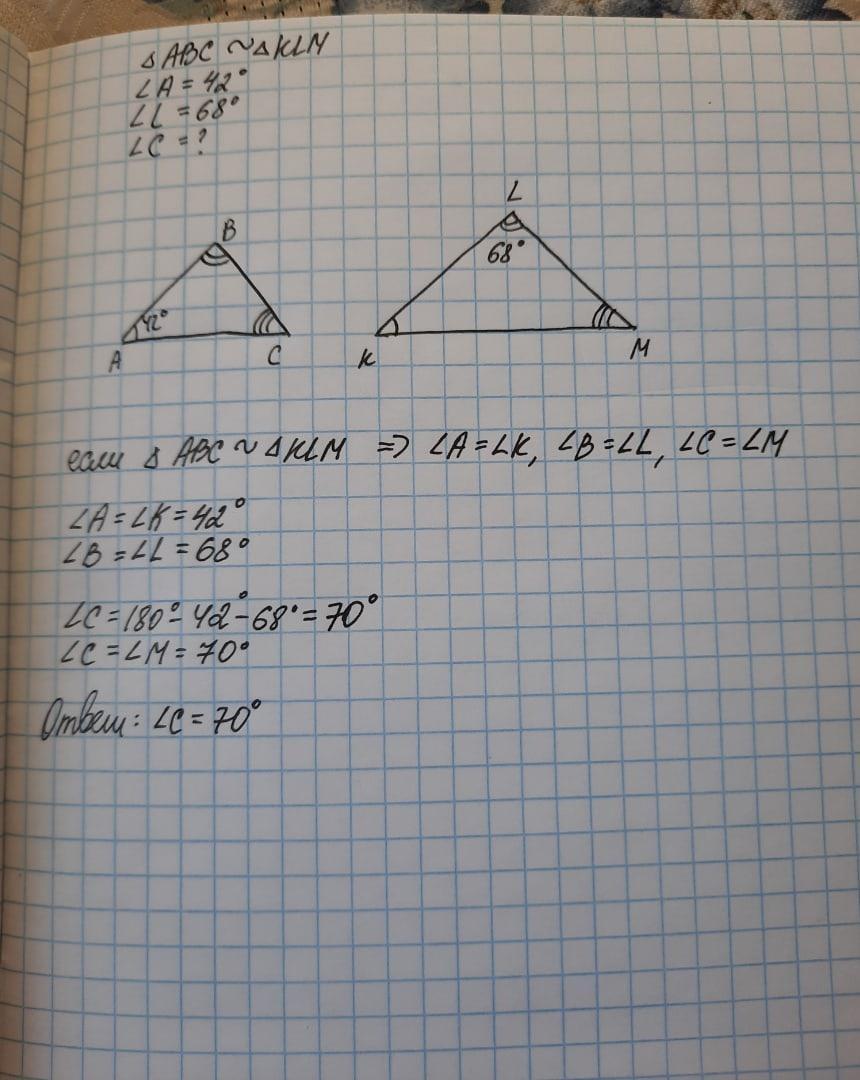 △ ABC ~ △ KLM
∠A = 42°
∠L = 68°
∠C = ?
B
L
68°
42°
A
C
K
M
если △ ABC ~ △ KLM => ∠A = ∠K, ∠B = ∠L, ∠C = ∠M
∠A = ∠K = 42°
∠B = ∠L = 68°
∠C = 180° - 42° - 68° = 70°
∠C = ∠M = 70°
Ответ: ∠C = 70°